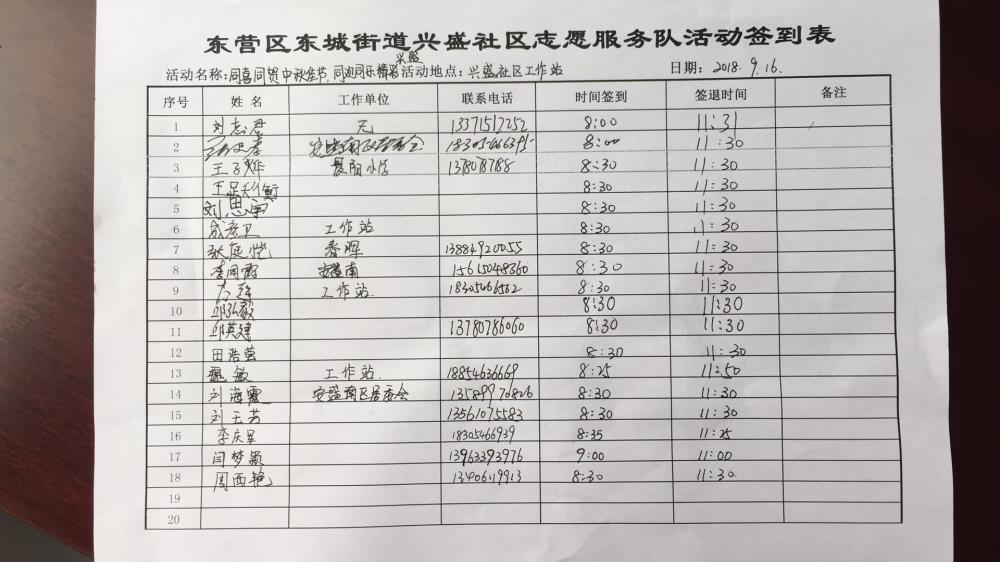 东营区东城街道兴盛社区志愿服务队活动签到表
兴盛
活动名称:同喜同贺中秋佳节,同 活动地点:兴盛社区工作站 日期:2018.9.16.
序号 姓名 工作单位 联系电话 时间签到 签退时间 备注
1 刘志君 无 13371517252 8:00 11:31
2 8:00 11:30
3 王子烨 晨阳小学 1378078788 8:30 11:30
4 8:30 11:30
5 刘思宇 8:30 11:30
6 成彦卫 工作站 8:30 11:30
7 张庭悦 春晖 13884920055 8:30 11:30
8 李同霞 安盛南 15615048360 8:30 11:30
9 工作站. 18305466562 8:30 11:30
10 邱弘毅 8:30 11:30
11 邱英建 13780786060 8:30 11:30
12 田浩萤 8:30 11:30
13 魏敏 工作站. 18854636669 8:25 11:50
14 刘海霞 安盛南区居委会 13589970806 8:30 11:30
15 刘玉芳 13561075583 8:30 11:30
16 李庆军 18305466939 8:35 11:25
17 闫梦颖 13963393976 9:00 11:00
18 周西艳 13406119913 8:30 11:30
19
20